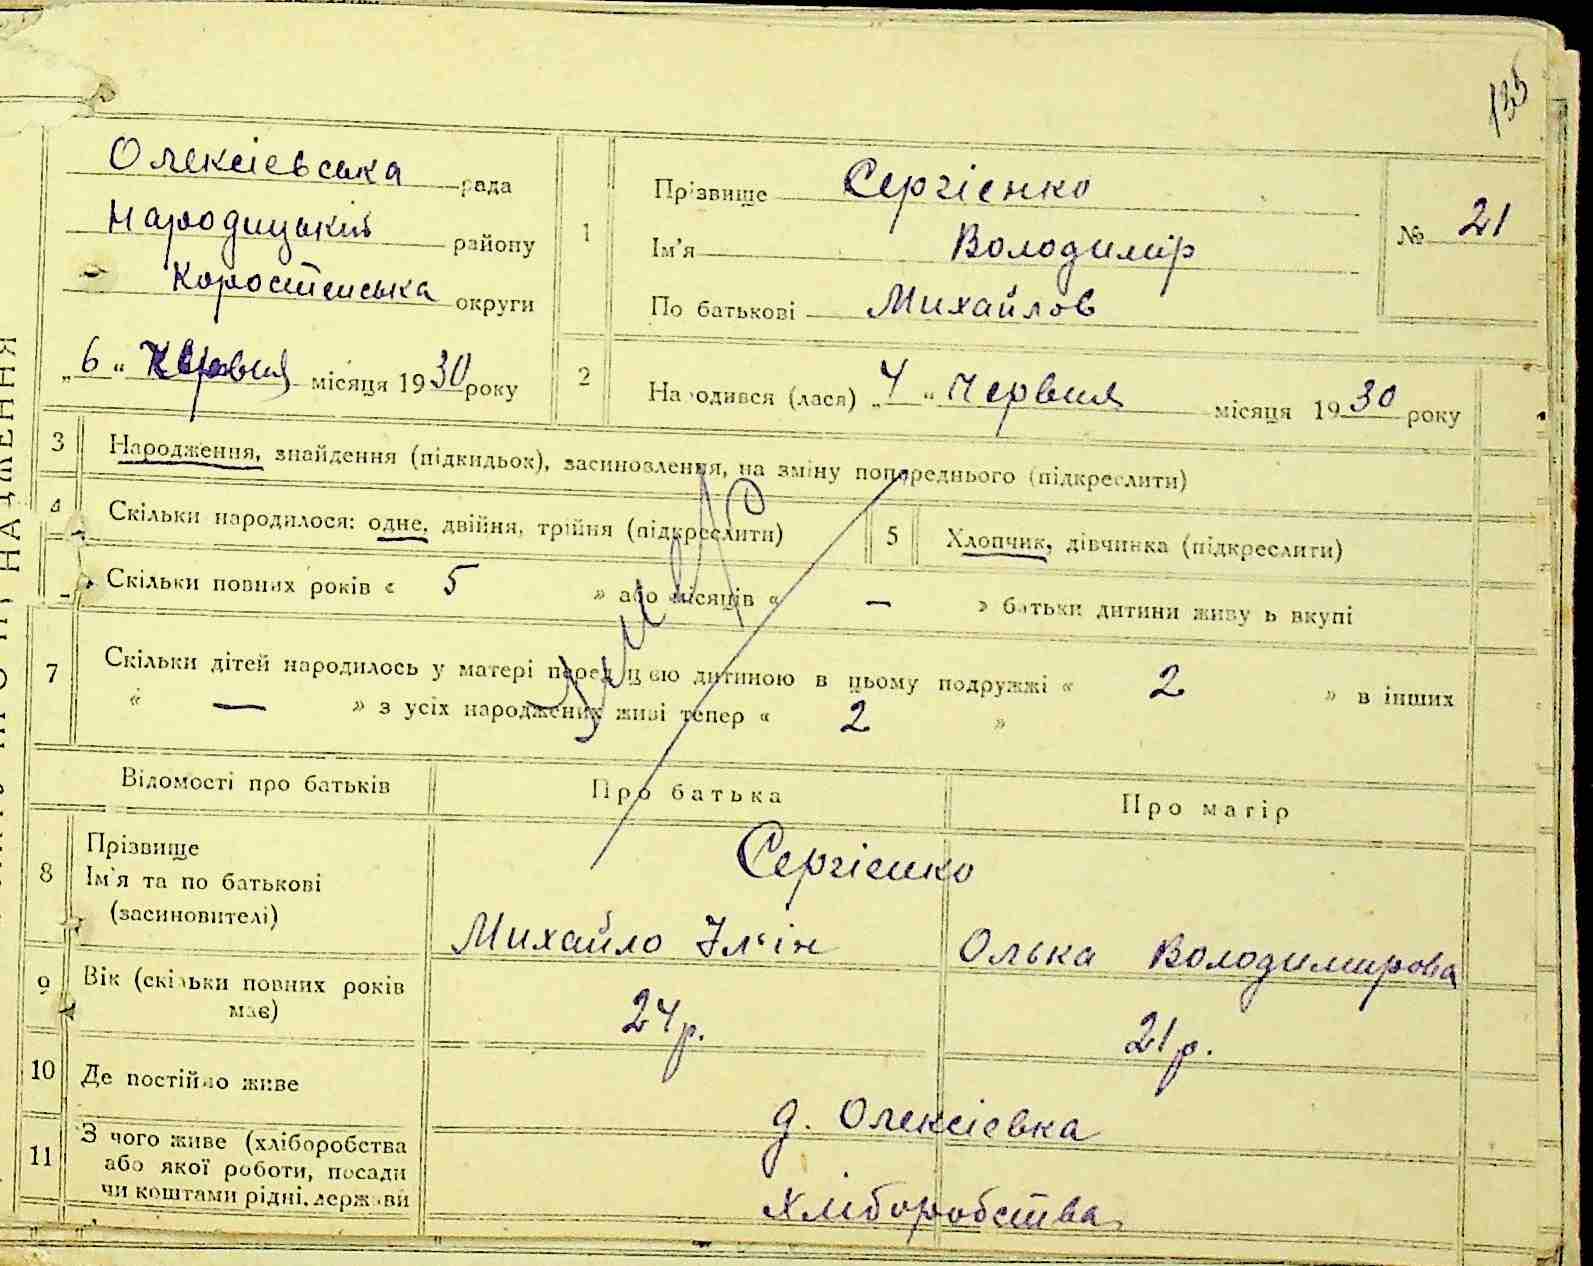 135
Олексієвська рада
Народицький району
Коростенська округи
„6“ червня місяця 1930 року
1
Прізвище Сергієнко
Ім'я Володимір
По батькові Михайлов
№ 21
2
Народився (лася) „4“ червня місяця 1930 року
3 Народження, знайдення (підкидьок), засиновлення, на зміну попереднього (підкреслити)
4 Скільки народилося: одне, двійня, трійня (підкреслити)
5 Хлопчик, дівчинка (підкреслити)
Скільки повних років « 5 » або місяців « — » батьки дитини живуть вкупі
умер
7 Скільки дітей народилось у матері перед цією дитиною в цьому подружжі « 2 » в інших
« — » з усіх народжених живі тепер « 2 »
Відомості про батьків Про батька Про матір
8 Прізвище
Ім'я та по батькові
(засиновителі)
Сергієнко
Михайло Іл'ін Олька Володимирова
9 Вік (скільки повних років
має)
24 р. 21 р.
10 Де постійно живе
д. Олексієвка
11 З чого живе (хліборобства
або якої роботи, посади
чи коштами рідні, держави
Хліборобства